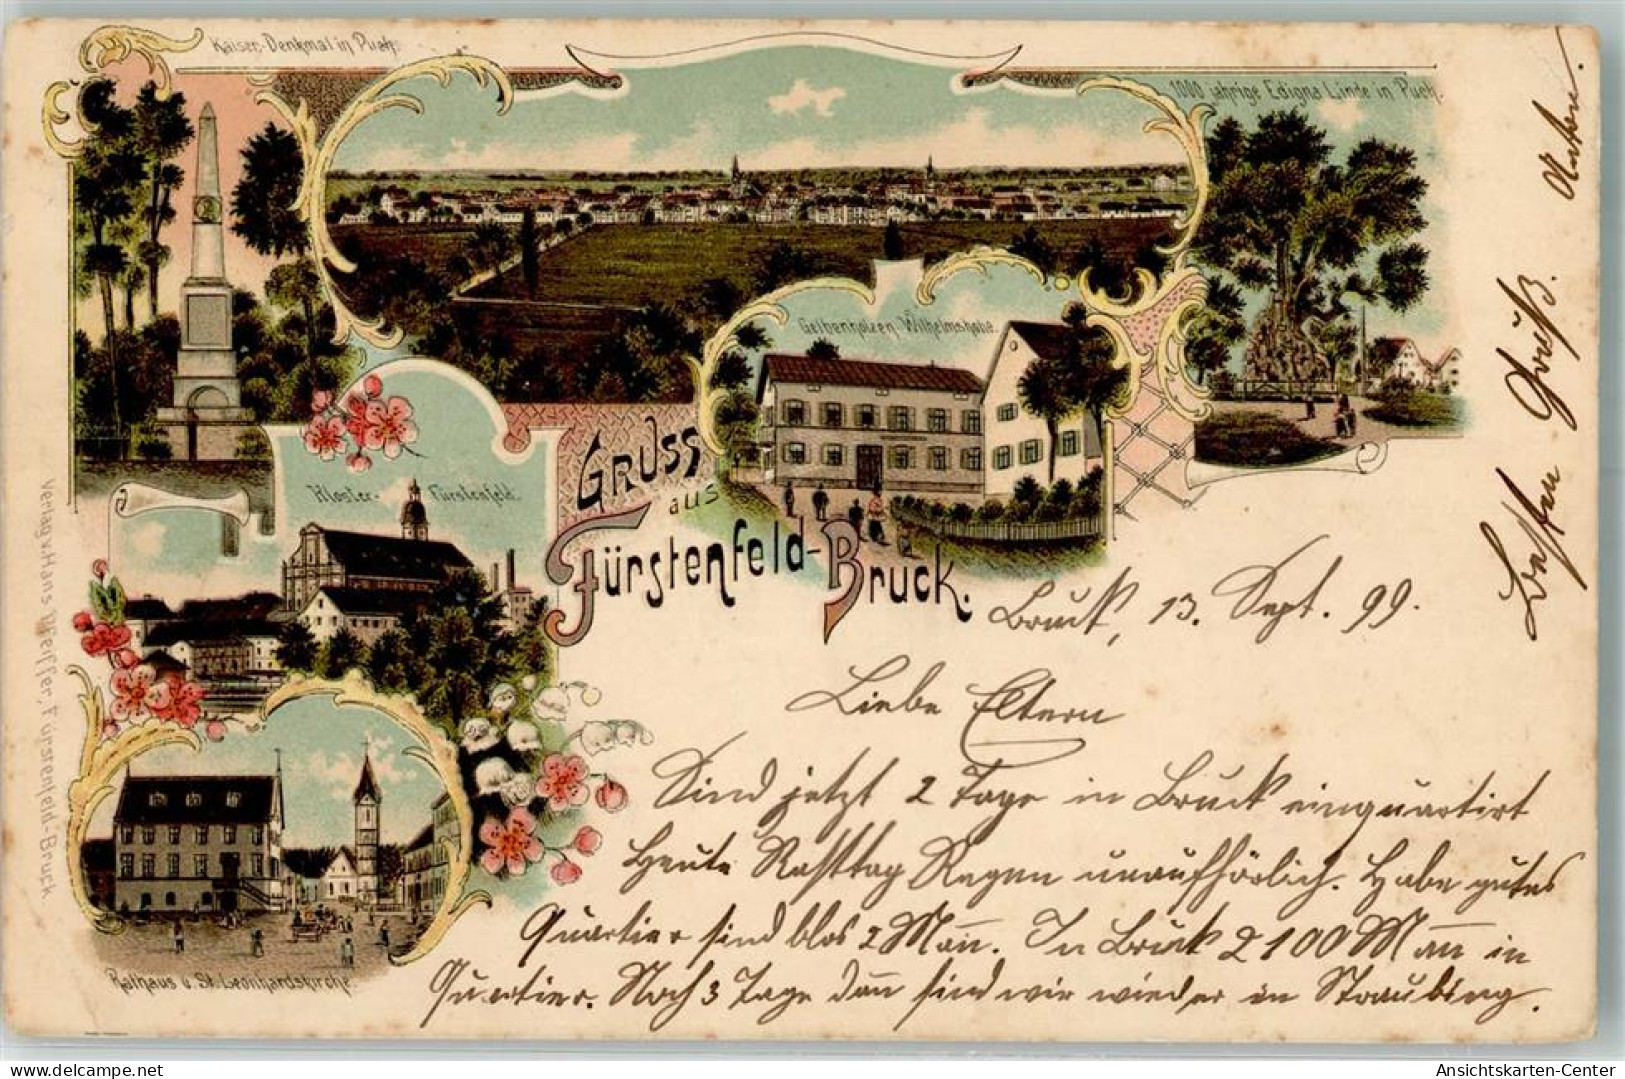 Kaiser-Denkmal in Puch.
1000 jährige Edigna Linde in Puch.
Wilhelmshöhe.
Kloster- Fürstenfeld.
GRUSS
aus
Fürstenfeld-Bruck.
Rathaus u. St. Leonhardskirche.
Verlag v. Hans Pfeiffer, Fürstenfeld-Bruck
Bruck, 13. Sept. 99.
Liebe Eltern
Sind jetzt 2 Tage in Bruck einquartirt
Heute Rasttag Regen unaufhörlich. Habe gutes
Quartier sind blos 2 Mann. In Bruck 2100 Mann in
Quartier. Noch 3 Tage dann sind wir wieder in Straubing.
Besten Gruß. Anton.
delcampe.net
Ansichtskarten-Center